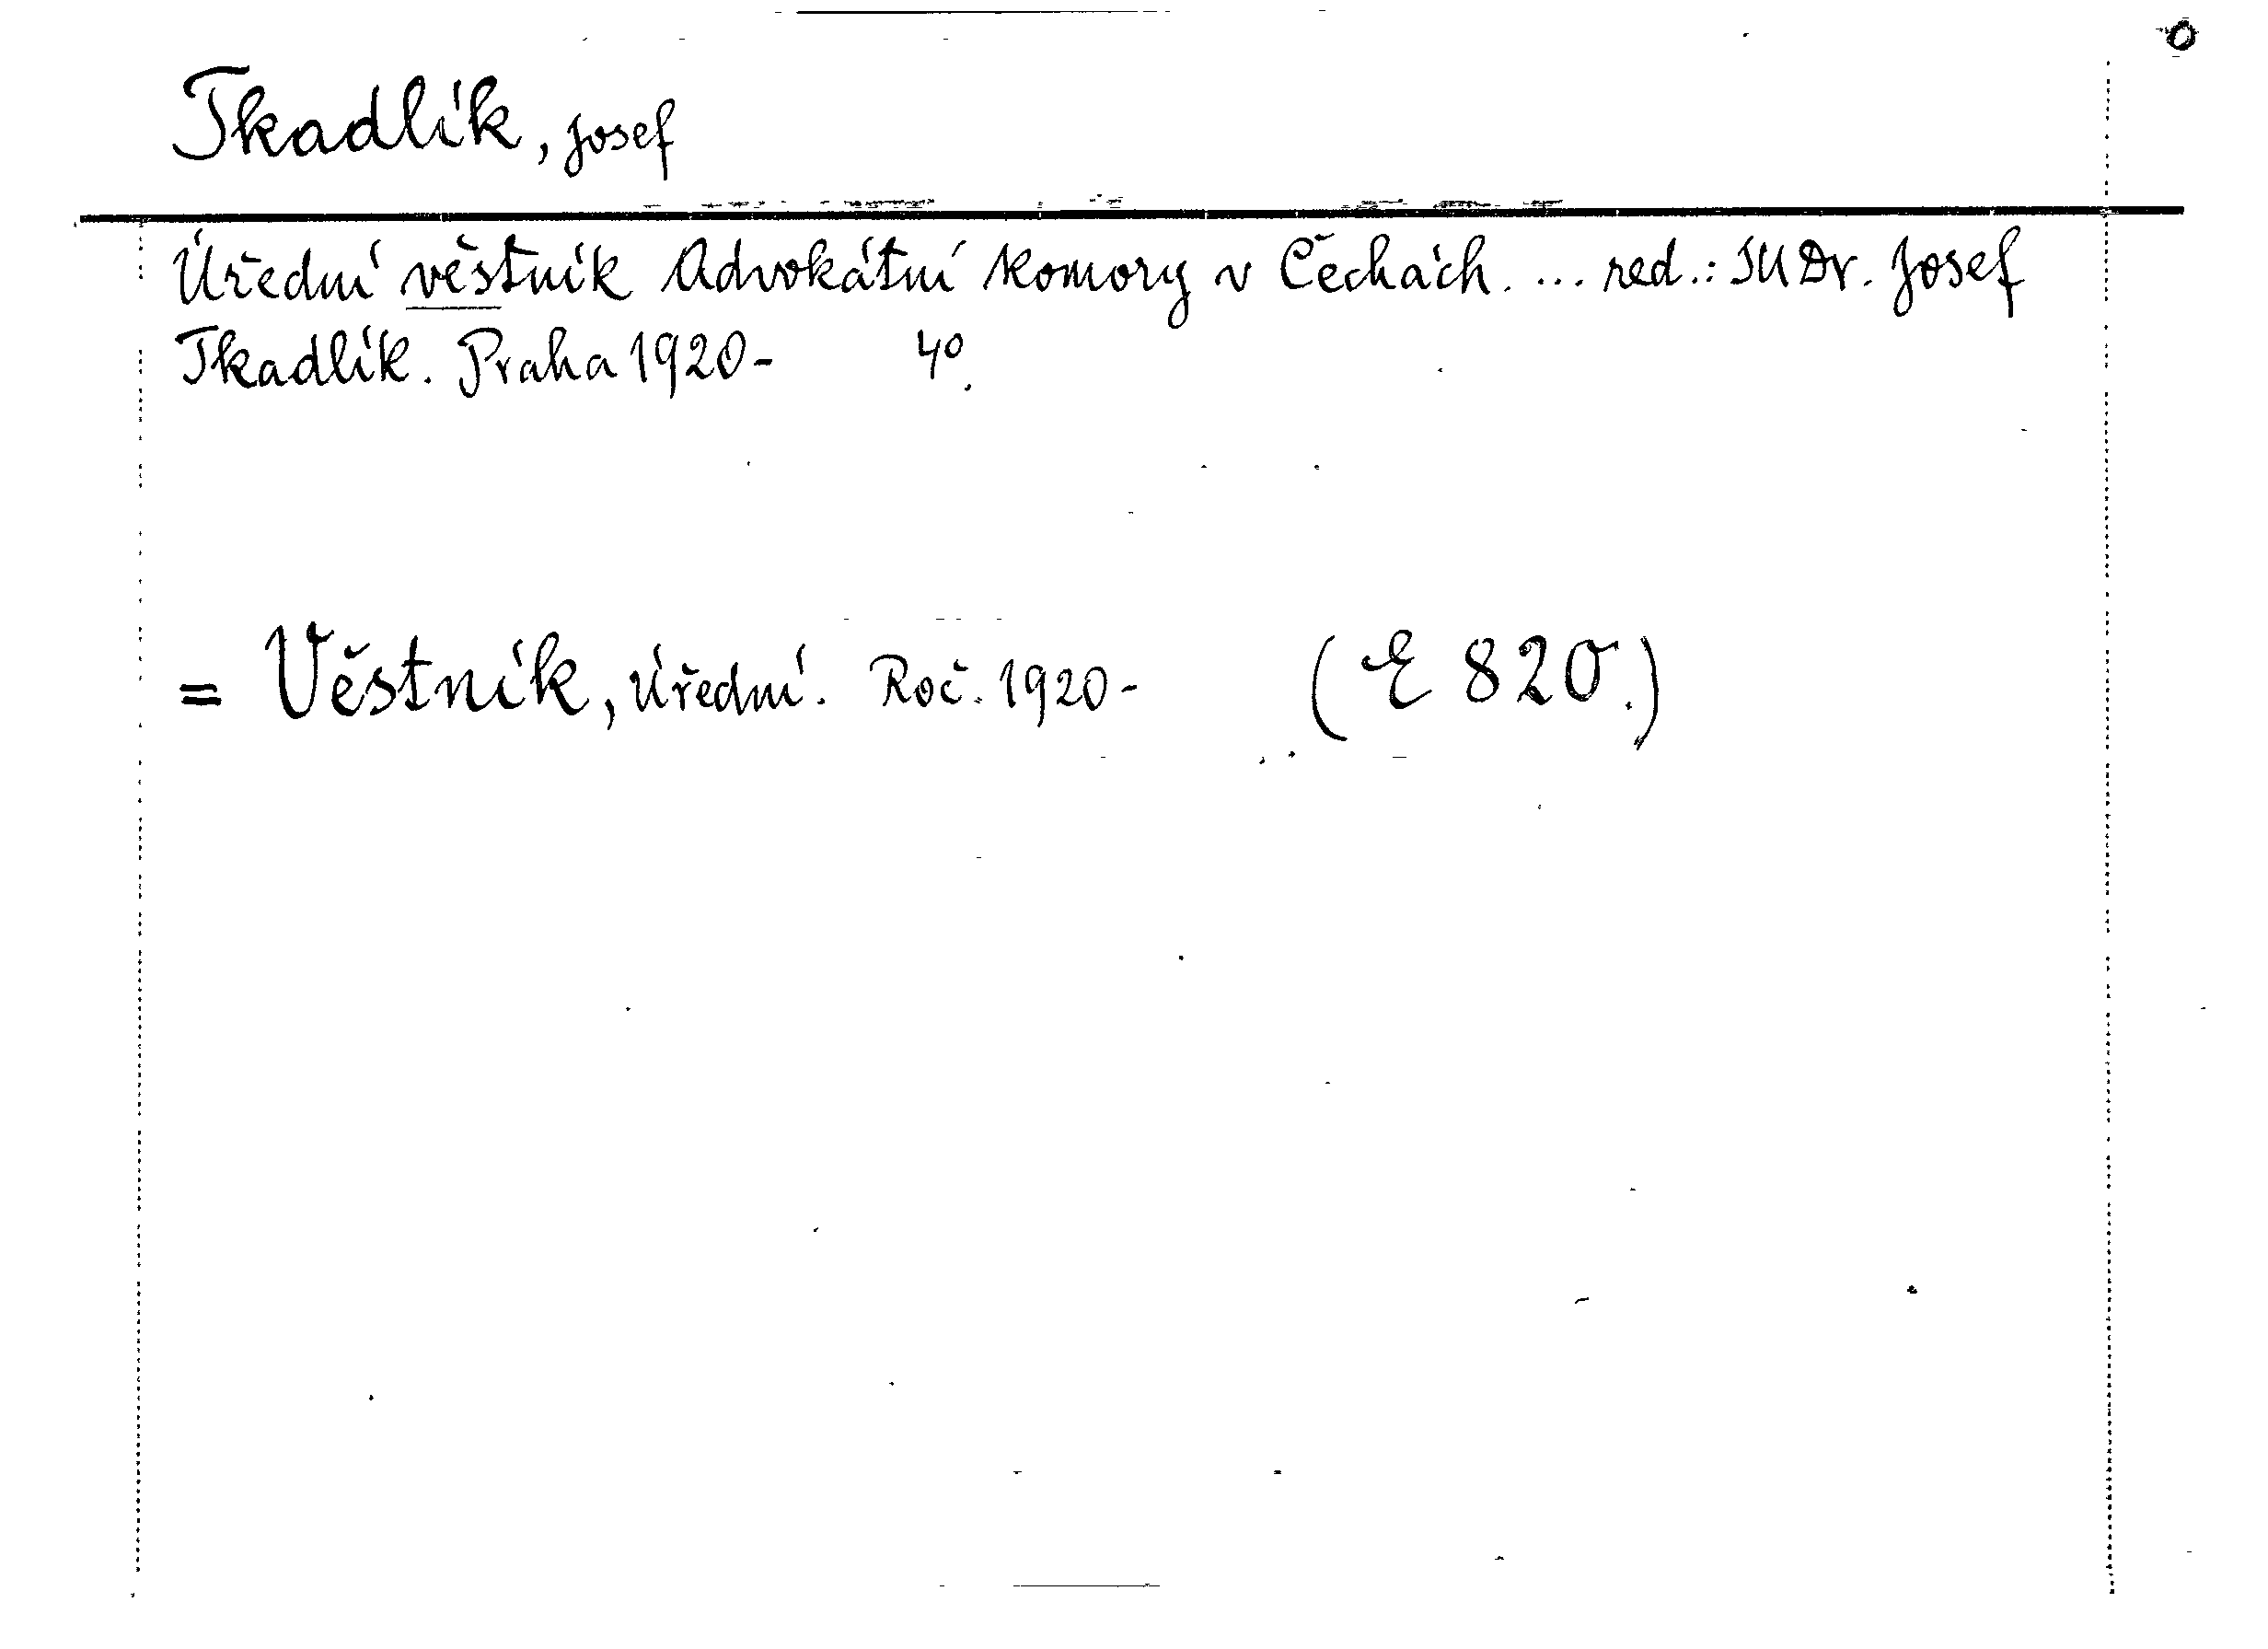 o
Tkadlík, Josef
Úřední věstník Advokátní komory v Čechách. ... red.: JUDr. Josef
Tkadlík. Praha 1920- 4°.
= Věstník, úřední. Roč. 1920- (E 820.)